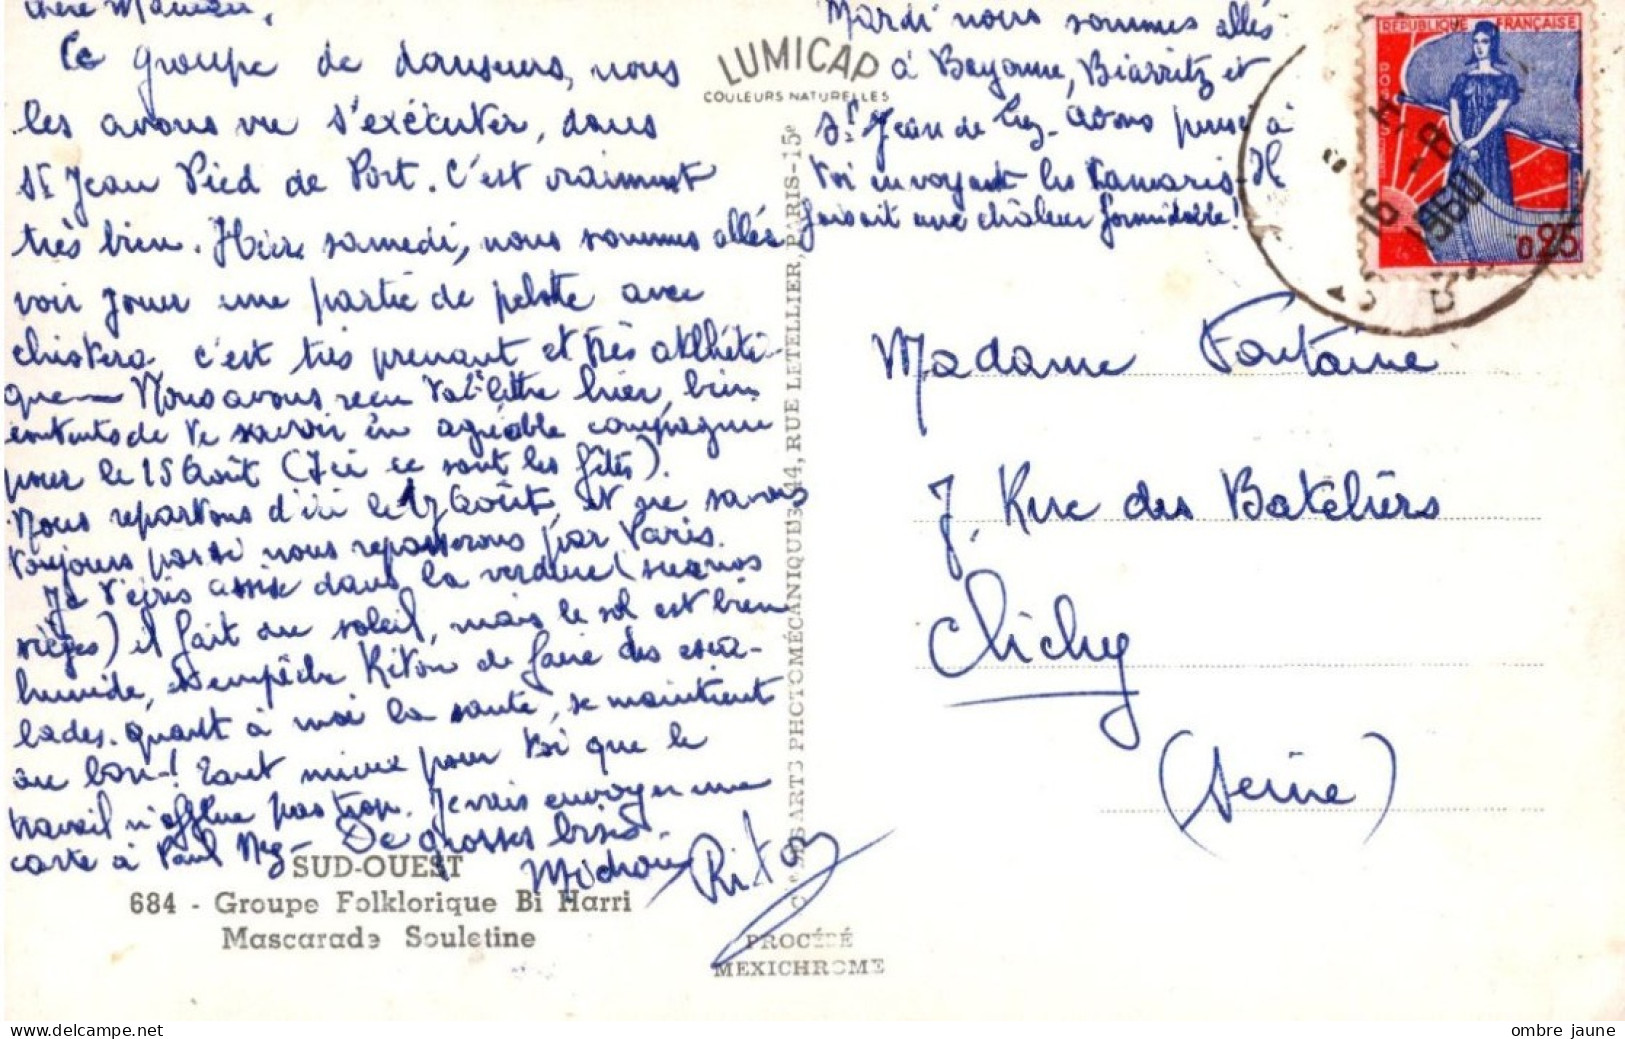 Chère Maman,
Ce groupe de danseurs, nous
les avons vu s'exécuter, dans
St Jean Pied de Port. C'est vraiment
très bien. Hier samedi, nous sommes allés
voir jouer une partie de pelote avec
chistera c'est très prenant et très athléti-
que — Nous avons reçu ta lettre hier, bien
contents de te savoir en agréable compagnie
pour le 15 Août (Ici ce sont les fêtes).
Nous repartons d'ici le 17 Août, et ne savons
toujours pas si nous repasserons par Paris.
Je t'écris assise dans la verdure
sièges) il fait du soleil, mais le sol est bien
humide, empêche Riton de faire des esca-
lades. quant à moi la santé, se maintient
au bon! Tant mieux pour toi que le
travail n'afflue pas trop. Je vais envoyer une
carte à Paul De grosses bises.
Riton
Mardi nous sommes allés
à Bayonne, Biarritz et
St Jean de Luz. Avons pensé à
toi en voyant les tamaris. Il
faisait une chaleur formidable!
LUMICAP
COULEURS NATURELLES
LES ARTS PHOTOMÉCANIQUES 44, RUE LETELLIER, PARIS-15e
SUD-OUEST
684 - Groupe Folklorique Bi Harri
Mascarade Souletine
PROCÉDÉ
MEXICHROME
RÉPUBLIQUE FRANÇAISE
POSTES
0,25
16 -8
1960
Madame Fontaine
7, Rue des Bateliers
Clichy
(Seine)
ombre jaune